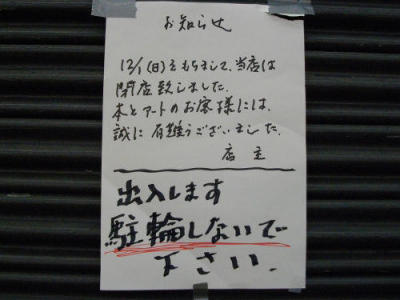 お知らせ
12/1(日)をもちまして、当店は
閉店致しました。
本とアートのお客様には、
誠に有難うございました。
店主
出入します
駐輪しないで
下さい.